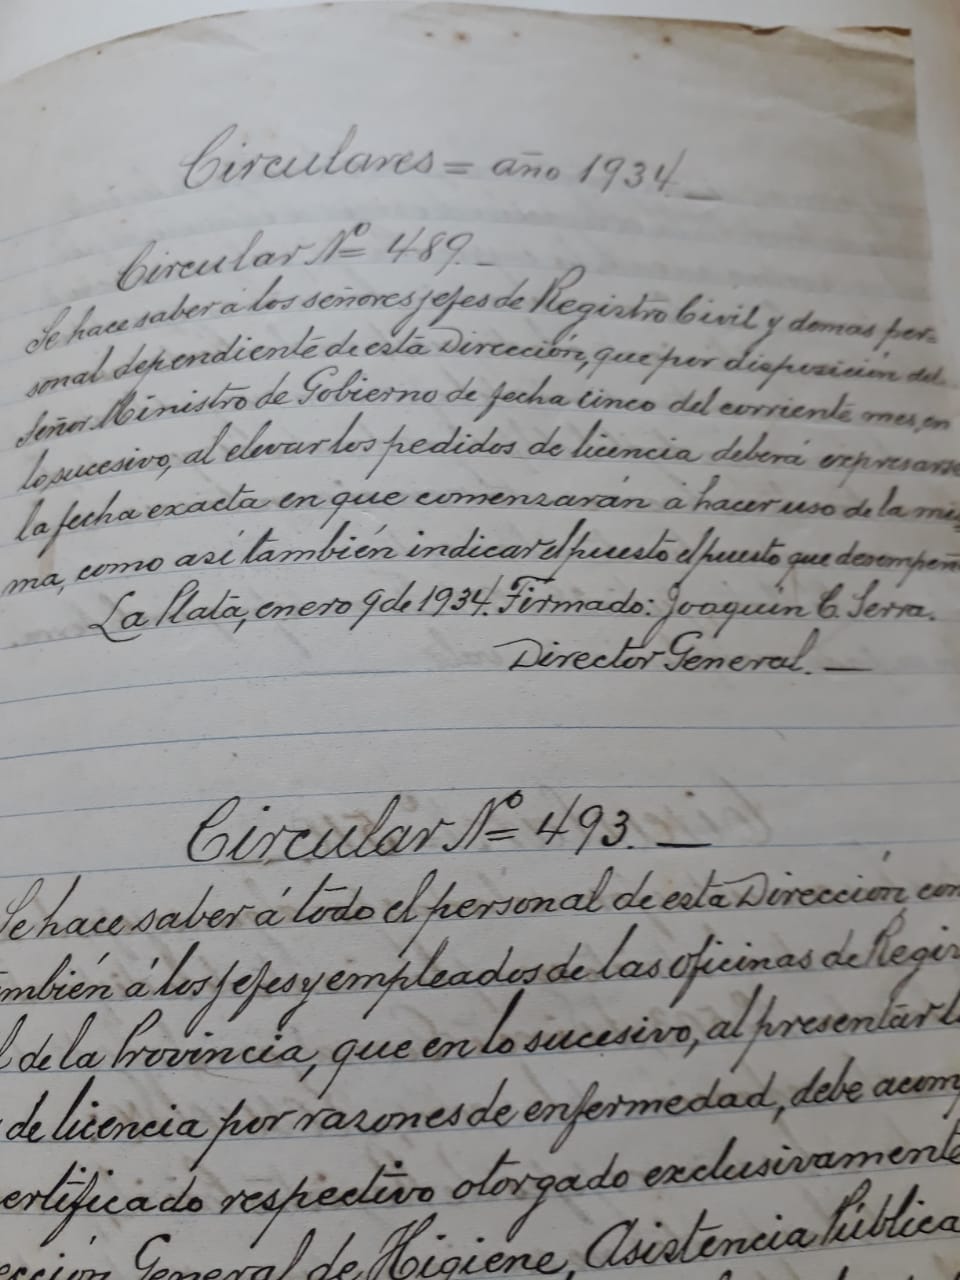 Circulares = año 1934 —
Circular Nº 489. –
Se hace saber á los señores jefes de Registro Civil y demas per-
sonal dependiente de esta Dirección, que por disposición del
Señor Ministro de Gobierno de fecha cinco del corriente mes, en
lo sucesivo, al elevar los pedidos de licencia deberá expresarse
la fecha exacta en que comenzarán á hacer uso de la mis-
ma, como así también indicar el puesto el puesto que desempeñ
La Plata, enero 9 de 1934. Firmado: Joaquin C. Serra.
Director General. —
Circular Nº 493. —
Se hace saber á todo el personal de esta Dirección com
mbién á los jefes y empleados de las oficinas de Regis
l de la Provincia, que en lo sucesivo, al presentar l
de licencia por razones de enfermedad, debe acomp
ertificado respectivo otorgado exclusivamente
ección General de Higiene, Asistencia Pública